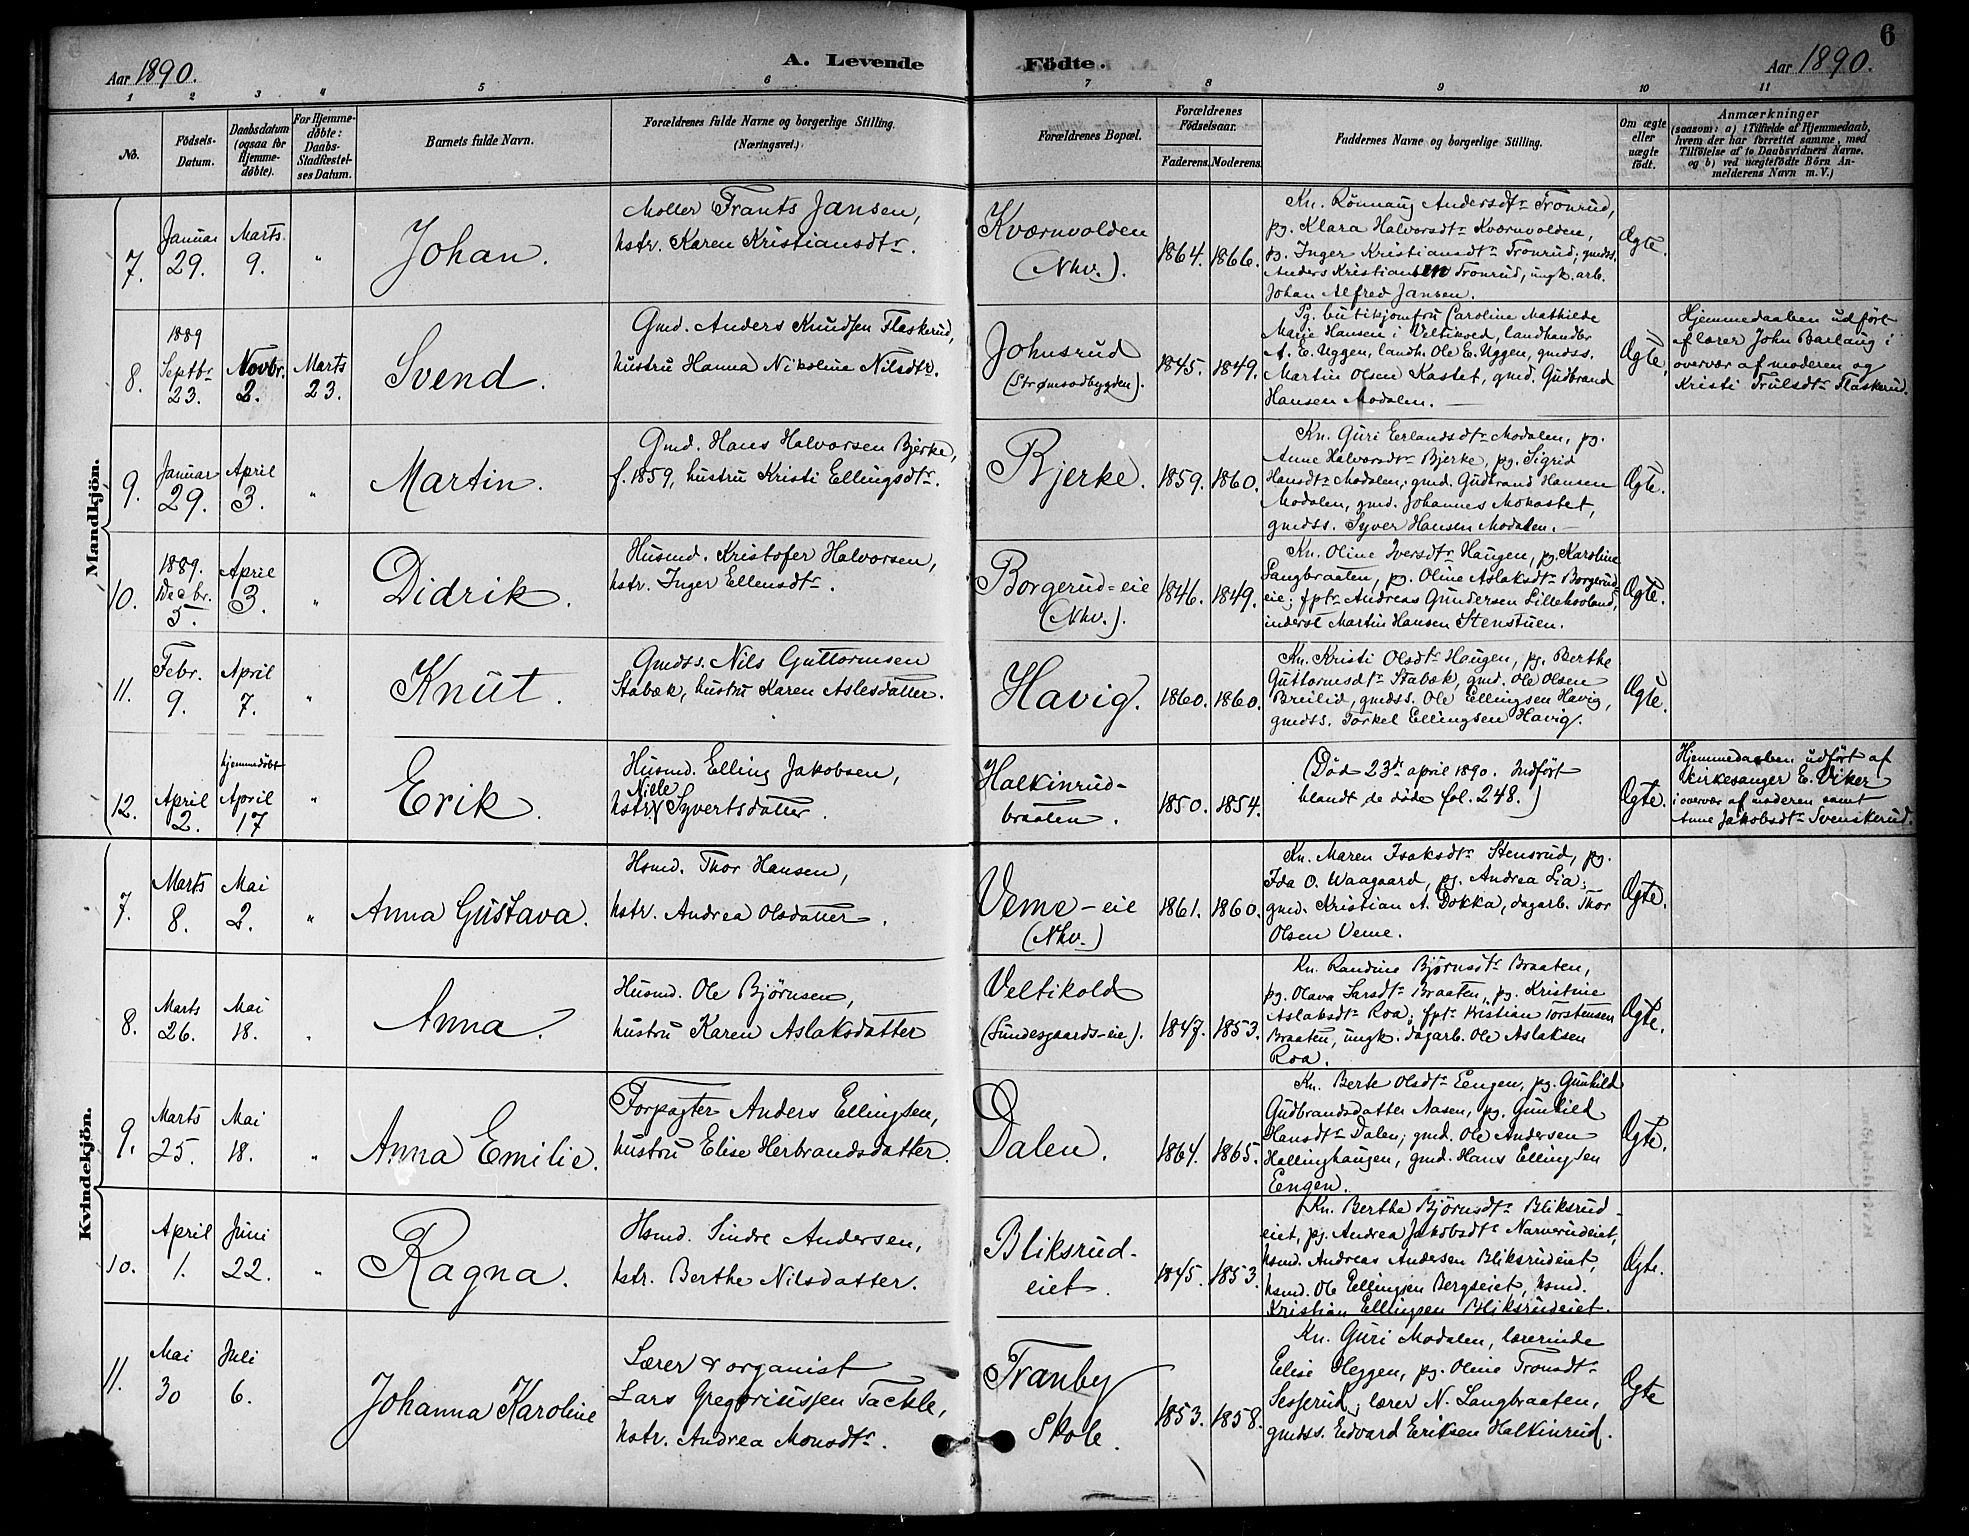 6
Aar 1890.
A. Levende
Födte.
Aar 1890.
1 2 3 4 5 6 7 8 9 10 11
No.
Födsels-
Datum.
Daabsdatum
(ogsaa for
Hjemme-
døbte).
For Hjemme-
døbte:
Daabs-
Stadfæstel-
ses Datum.
Barnets fulde Navn.
Forældrenes fulde Navne og borgerlige Stilling.
(Næringsvei.)
Forældrenes Bopæl.
Forældrenes
Födselsaar.
Faderens. Moderens.
Faddernes Navne og borgerlige Stilling.
Om ægte
eller
uægte
födt.
Anmærkninger
(saasom: a) i Tilfælde af Hjemmedaab,
hvem der har forrettet samme, med
Tilföielse af to Daabsvidners Navne.
og b) ved uægtefödte Börn An-
melderens Navn m. V.)
Mandkjön.
7.
Januar
29.
Marts
9.
"
Johan.
Møller Frants Jansen,
hstr. Karen Kristiansdtr.
Kværnvolden
(Nhv.).
1864. 1866.
Kn. Rönnaug Andersdtr Tronrud,
pg. Klara Halvorsdtr Kværnvolden,
pg. Inger Kristiansdtr Tronrud; gmdss.
Anders Kristiansen Tronrud, ungk. arb.
Johan Alfred Jansen.
Ægte.
8.
1889
Septbr
23.
Novbr.
2.
Marts
23.
Svend.
Gmd. Anders Knudsen Flaskerud,
hustru Hanna Nikoline Nilsdtr.
Johnsrud
(Strømsodbygden).
1845. 1849.
Pg. butikjomfru Caroline Mathilde
Marie Hansen i Veltikved, landhandler
A. E. Uggen, landh. Ole E. Uggen, gmdss.
Martin Olsen Kastet, gmd. Gudbrand
Hansen Modalen.
Ægte.
Hjemmedaaben udfört
af lærer John Barlaug i
overvær af moderen og
Kristi Trulsdtr Flaskerud.
9.
Januar
29.
April
3.
"
Martin.
Gmd. Hans Halvorsen Bjerke,
f. 1859, hustru Kristi Ellingsdtr.
Bjerke.
1859. 1860.
Kn. Guri Erlandsdtr Modalen, pg.
Anne Halvorsdtr Bjerke, pg. Sigrid
Hansdtr Modalen; gmd. Gudbrand Hansen
Modalen, gmd. Johannes Mokastet,
gmdss. Syver Hansen Modalen.
Ægte.
10.
1889.
Decbr.
5.
April
3.
"
Didrik.
Husmd. Kristofer Halvorsen,
hstr. Inger Ellensdtr.
Borgerud-eie
(Nhv.).
1846. 1849.
Kn. Oline Iversdtr Haugen, pg. Karoline
Langbraaten, pg. Oline Aslaksdtr Borgerud-
eie; fptr Andreas Gundersen Lillehovland,
inderst Martin Hansen Stenstuen.
Ægte.
11.
Febr.
9.
April
7.
"
Knut.
Gmdss. Nils Guttormsen
Stabæk, hustru Karen Aslesdatter.
Havig.
1860. 1860.
Kn. Kristi Olsdtr Haugen, pg. Berthe
Guttormsdtr Stabæk, gmd. Ole Olsen
Breilid, gmdss. Ole Ellingsen Havig,
gmdss. Torkel Ellingsen Havig.
Ægte.
12.
April
2.
hjemmedöbt
April
17
"
Erik.
Husmd. Elling Jakobsen,
Nille
hstr. Syvertsdatter.
Halkinrud-
braaten.
1850. 1854.
(Död 23de april 1890. Indfört
blandt de döde fol. 248.)
Ægte.
Hjemmedaaben udfört af
kirkesanger E. Viker
i overvær af moderen samt
Anne Jakobsdtr Svenskerud.
Kvindekjön.
7.
Marts
8.
Mai
2.
"
Anna Gustava.
Hsmd. Thor Hansen,
hstr. Andrea Olsdatter.
Veme-eie
(Nhv.)
1861. 1860.
Kn. Maren Isaksdtr Stensrud, pg.
Ida O. Waagaard, pg. Andrea Lia;
gmd. Kristian A. Dokka, dagarb. Thor
Olsen Veme.
Ægte.
8.
Marts
26.
Mai
18.
"
Anna.
Husmd. Ole Björnsen,
hustru Karen Aslaksdatter
Veltikold
(Lundesgaards-eie).
1847. 1853.
Kn. Randine Björnsdtr Braaten,
pg. Olava Larsdtr Braaten, pg. Kristine
Aslaksdtr Roa; fptr Kristian Torstensen
Braaten, ungk. dagarb. Ole Aslaksen
Roa.
Ægte.
9.
Marts
25.
Mai
18.
"
Anna Emilie.
Forpagter Anders Ellingsen,
hustru Elise Herbrandsdatter.
Dalen.
1864. 1865.
Kn. Berte Olsdtr Eengen, pg. Gunhild
Gudbrandsdatter Aasen, pg. Gunhild
Hansdtr Dalen; gmd. Ole Andersen
Hallinghaugen, gmd. Hans Ellingsen
Eengen.
Ægte.
10.
April
1.
Juni
22.
"
Ragna.
Hsmd. Sindre Andersen,
hstr. Berthe Nilsdatter.
Bliksrud-
eiet.
1845. 1853.
Kn. Berthe Björnsdtr Bliksrud-
eiet, pg. Andrea Jakobsdtr Narverudeiet,
hsmd. Andreas Andersen Bliksrudeiet,
hsmd. Ole Ellingsen Bergseiet, hsmd.
Kristian Ellingsen Bliksrudeiet.
Ægte.
11.
Mai
30
Juli
6.
Johanna Karoline
Lærer & organist
Lars Gregoriussen Tackle,
hstr. Andrea Monsdtr.
Tranby
Skole.
1853. 1858.
Kn. Guri Modalen, lærerinde
Elise Heggen, pg. Oline Tronsdtr
Sesserud; lærer N. Langbraaten,
gmdss. Edvard Eriksen Halkinrud.
Ægte